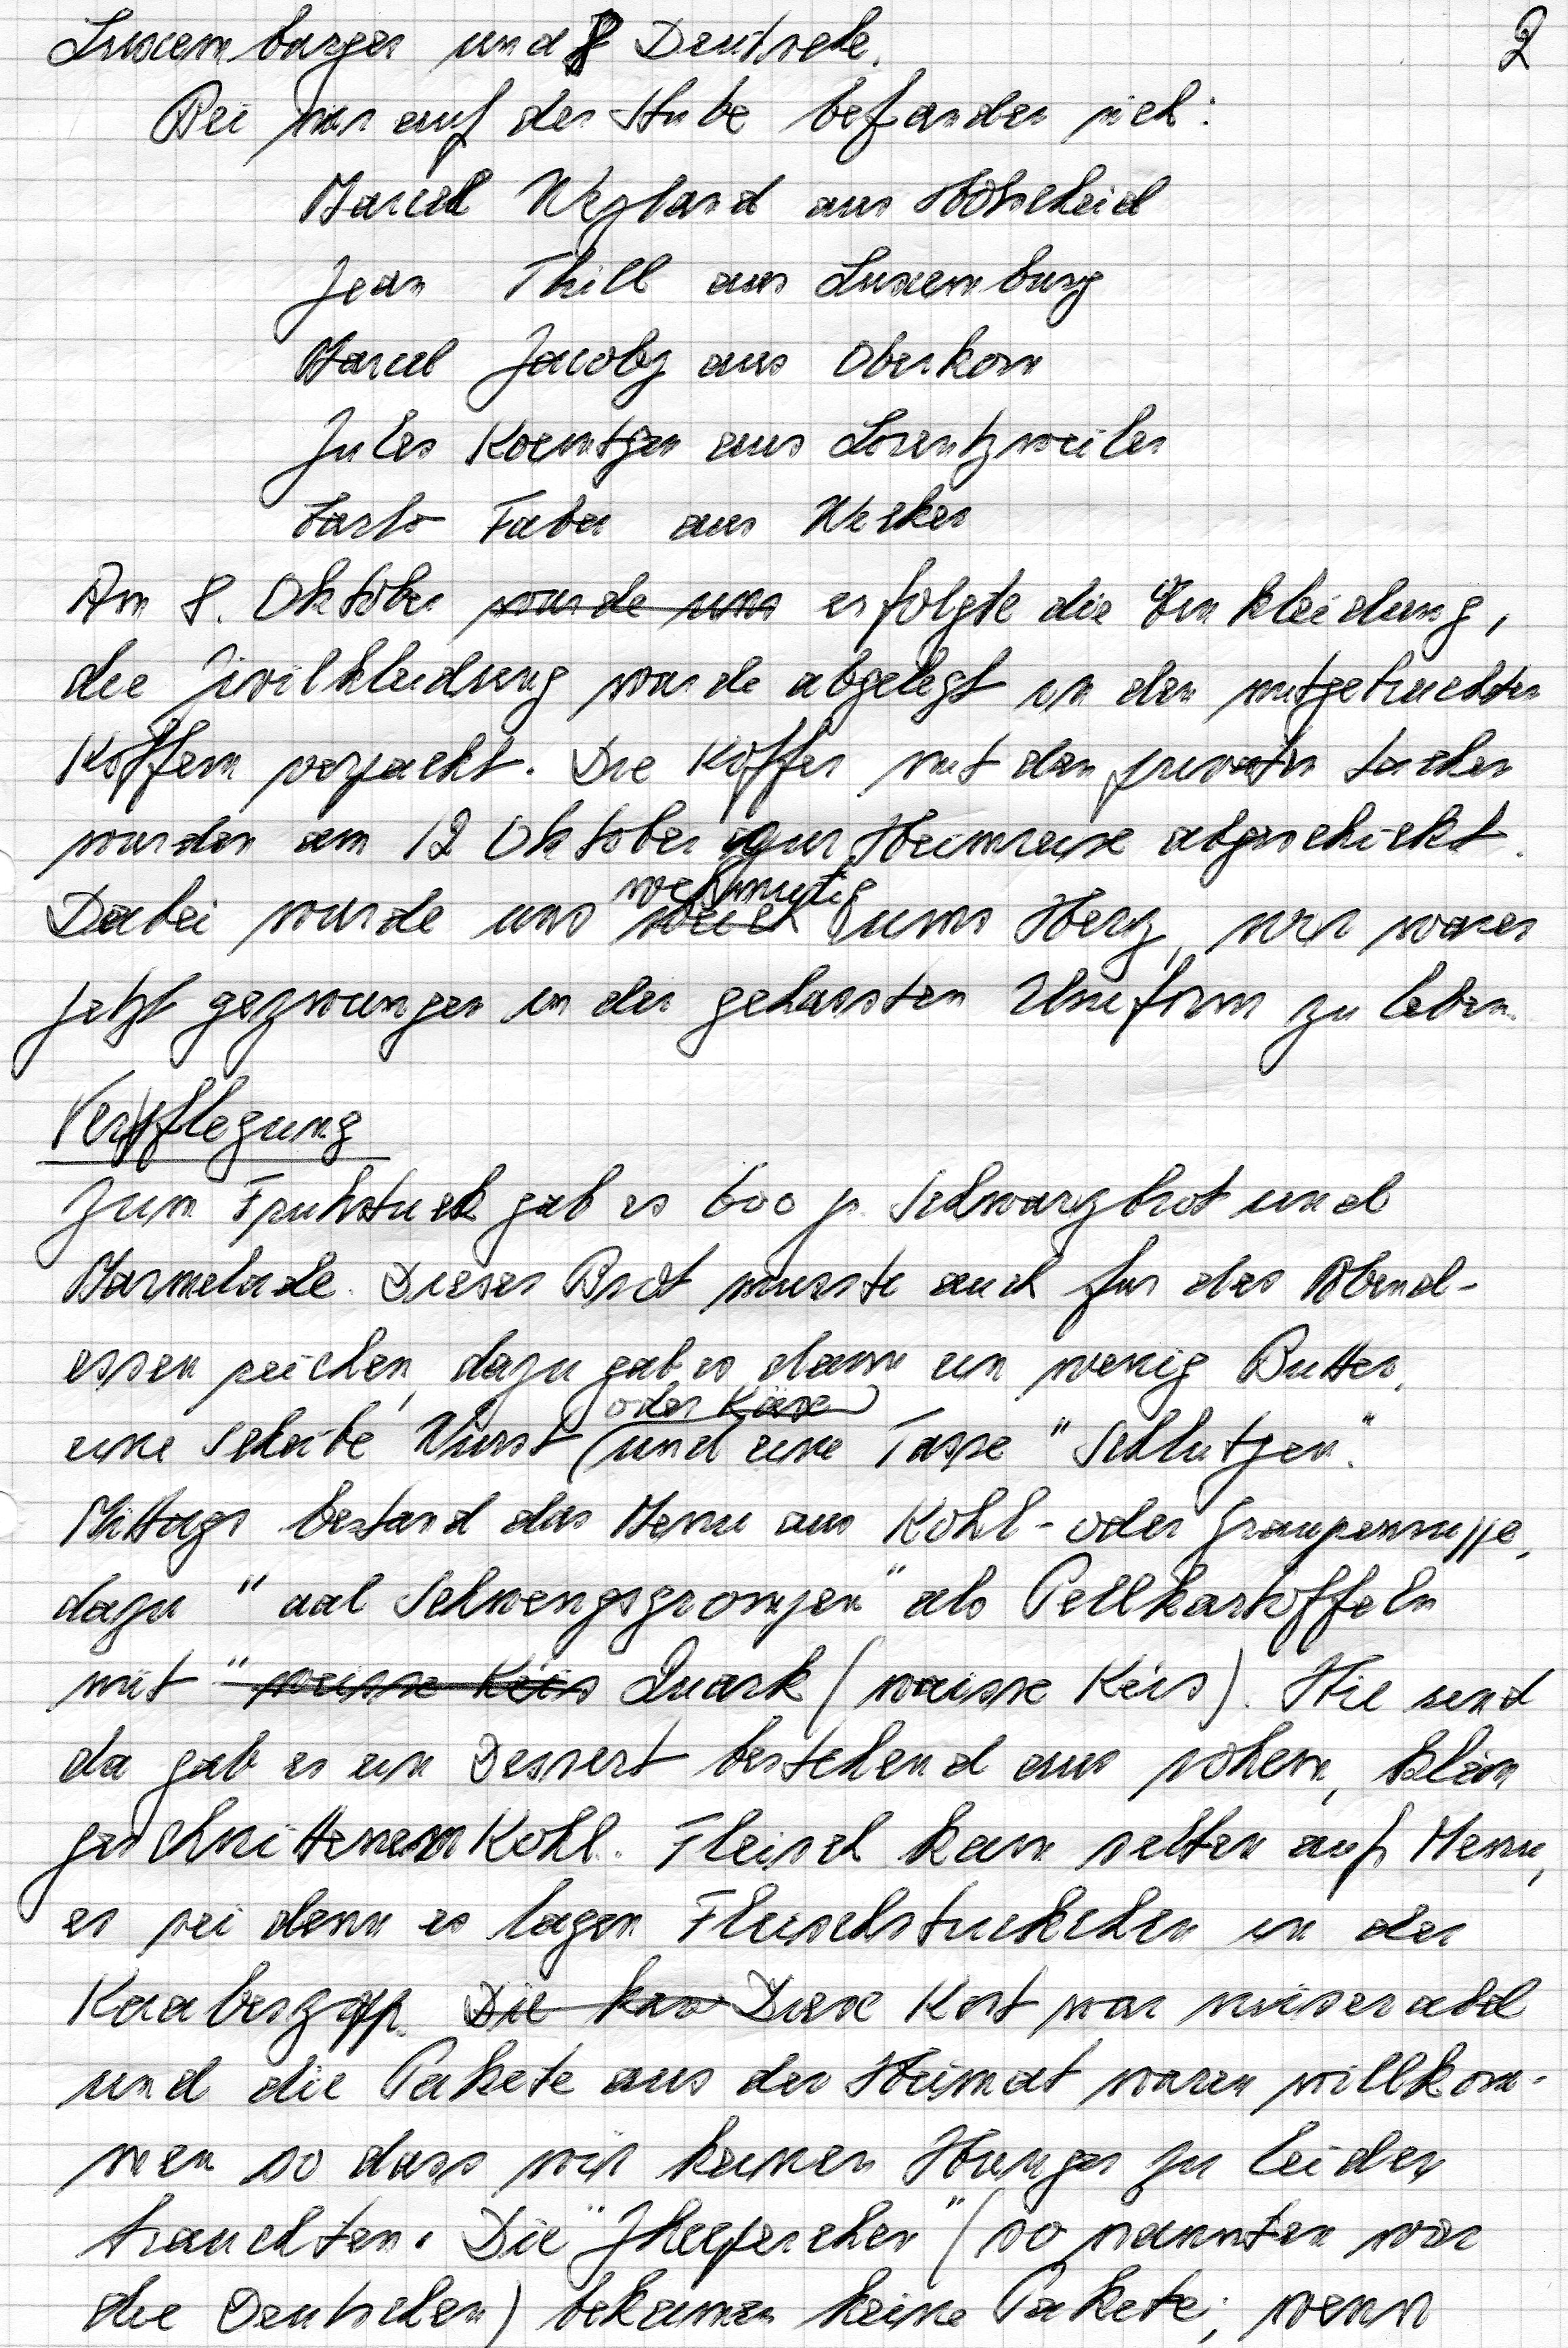 2
Luxemburger und 8 Deutsche.
Bei mir auf der Stube befanden sich:
Marcel Weyland aus Hobscheid
Jean Thill aus Luxemburg
Marcel Jacoby aus Oberkorn
Jules Koentgen aus Lorentzweiler
Carlo Faber aus Wecker
Am 8. Oktober wurde uns erfolgte die Einkleidung,
die Zivilkleidung wurde abgelegt in den mitgebrachten
Koffern verpackt. Die Koffer mit den privaten Sachen
wurden am 12 Oktober zur Heimreise abgeschickt.
wehmutig
Dabei wurde uns weich ums Herz, wir waren
jetzt gezwungen in der gehassten Uniform zu leben.
Verpflegung
Zum Fruhstuck gab es 600 gr. Schwarzbrot und
Marmelade. Dieses Brot musste auch fur das Abend-
essen reichen, dazu gab es dann ein wenig Butter,
oder Käse
eine Scheibe Wurst und eine Tasse "Schlutzen".
Mittags bestand das Menu aus Kohl- oder Graupensuppe,
dazu "aal Schwengsgromperen" als Pellkartoffeln
mit "weisse Kéis Quark (waisse Kéis). Hie und
da gab es ein Dessert bestehend aus rohem, klein
geschnittenem Kohl. Fleisch kam selten auf Menu,
es sei denn es lagen Fleischstuckchen in der
Kaabeszopp. Die kas Diese Kost war miserabel
und die Pakete aus der Heimat waren willkom-
men so dass wir keinen Hunger zu leiden
brauchten. Die (so nannten wir
die Deutschen) bekamen keine Pakete; wenn